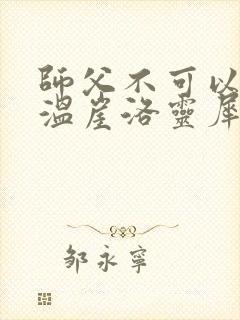 師父不可以
溫崖洛靈犀
邹永寧